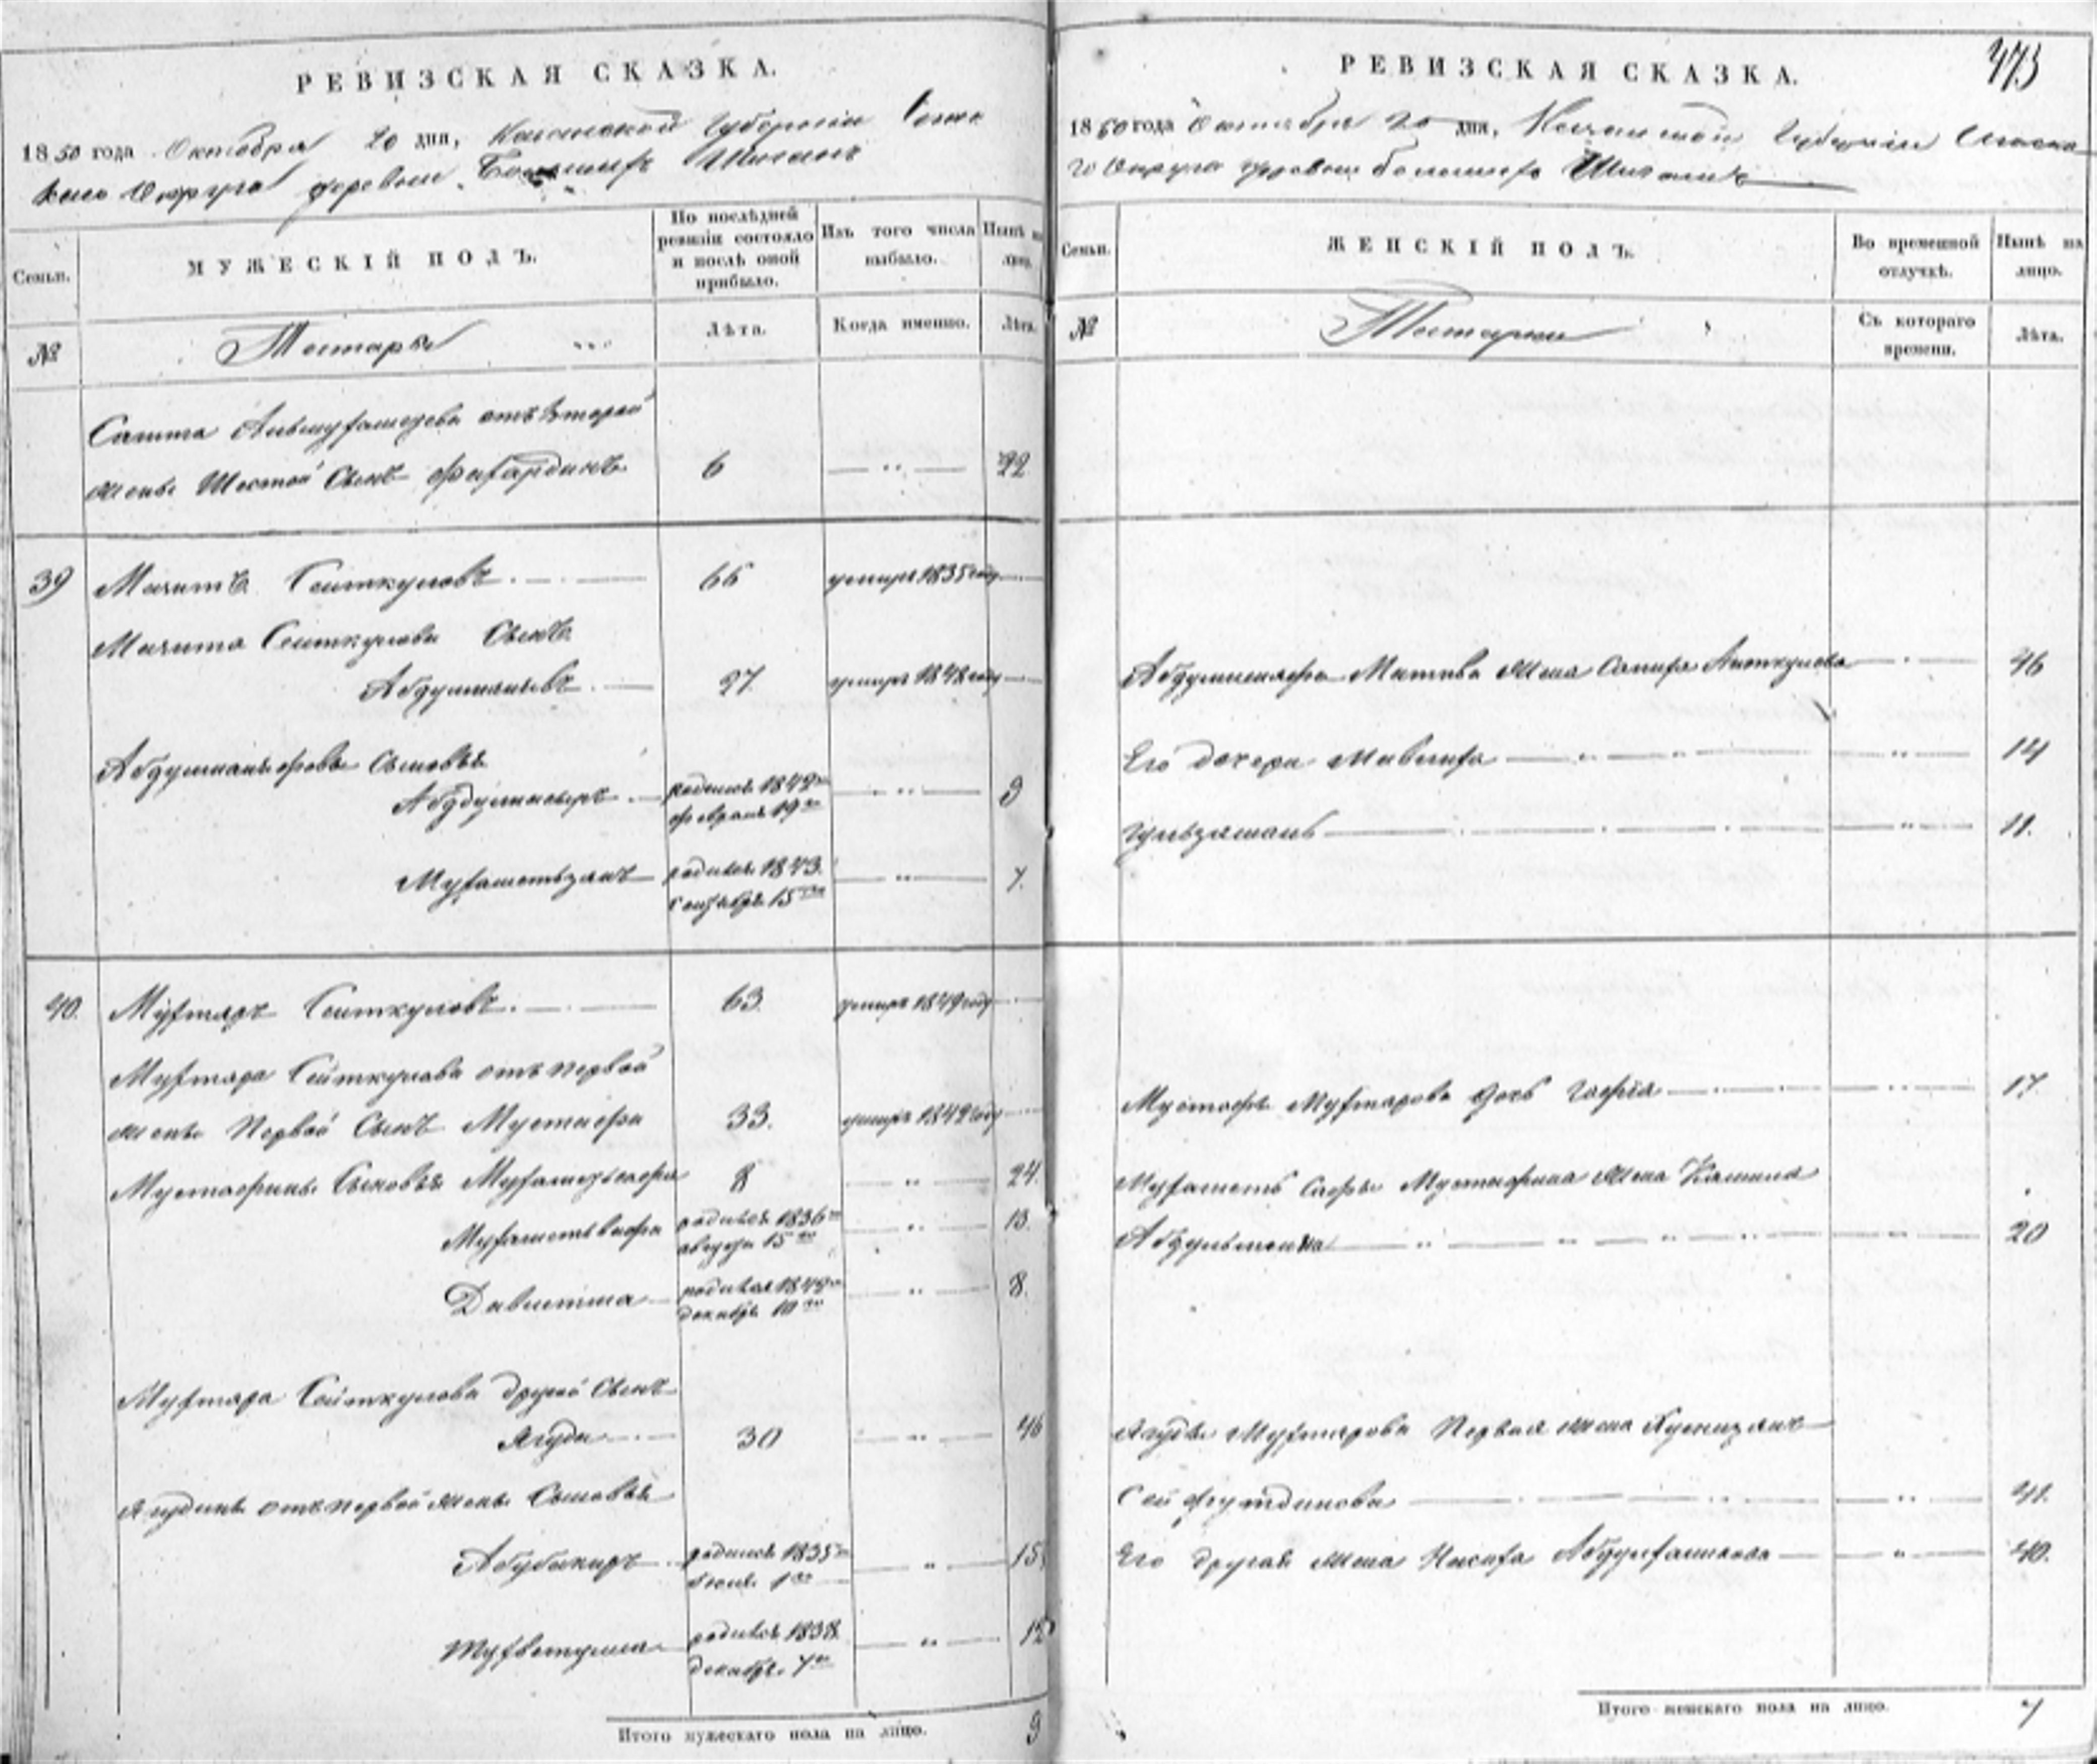 РЕВИЗСКАЯ СКАЗКА.
1850 года Октября 20 дня, Казанской Губернии Спас
каго Округа деревни Большихъ Шиганъ
Семьи.
МУЖЕСКІЙ ПОЛЪ.
По послѣдней ревизіи состояло и послѣ оной прибыло.
Изъ того числа выбыло.
Нынѣ на лицо.
№
Татары
Лѣта.
Когда именно.
Лѣта.
Сагита отъ второй
жены Шестой Сынъ 6 22
39 Мачитъ Сеиткуловъ 66 умеръ 1835 году
Мачита Сеиткулова Сынъ
27 умеръ 1848 году
Сыновья
родился 1842 февраля 19 9
Мухаметьзянъ родился 1843 сентября 15 7
40. Мухтаръ Сеиткуловъ 63 умеръ 1849 году
Мухтара Сеиткулова отъ первой
жены Первой Сынъ Мустафа 33. умеръ 1842 году
Мустафины Сыновья Мухаметьсафа 8 24.
родился 1836 августа 15 13.
Давлетша родился 1842 декабря 10 8.
Мухтара Сеиткулова другой Сынъ
Ягуда 30 46
Ягудины отъ первой жены Сыновья
Абубакиръ родился 1835 июня 1 15
Тухветулла родился 1838. декабря 7 12
Итого мужескаго пола на лицо. 9
РЕВИЗСКАЯ СКАЗКА.
473
1850 года Октября 20 дня, Казанской Губерніи Спаска
го Округа деревни большихъ Шиганъ
Семьи.
ЖЕНСКІЙ ПОЛЪ.
Во временной отлучкѣ.
Нынѣ на лицо.
№
Татарки
Съ котораго времени.
Лѣта.
Жена Сагира Аиткулова 46
Его дочери 14
Гульзямань 11.
Мустафы Мухтарова дочь Гафія 17.
Мухаметь Сафы Мустафина жена Камила
20
Ягуды Мухтарова Первая жена
Сейфутдинова 41.
Его другая жена 40.
Итого женскаго пола на лицо. 7